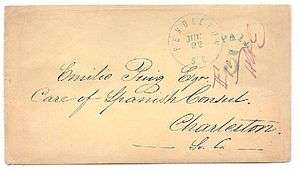 PENDLETON
JUN
22
S.C.
PAID
Emilio Puig Esqr
Care of Spanish Consul.
Charleston
So. Ca.